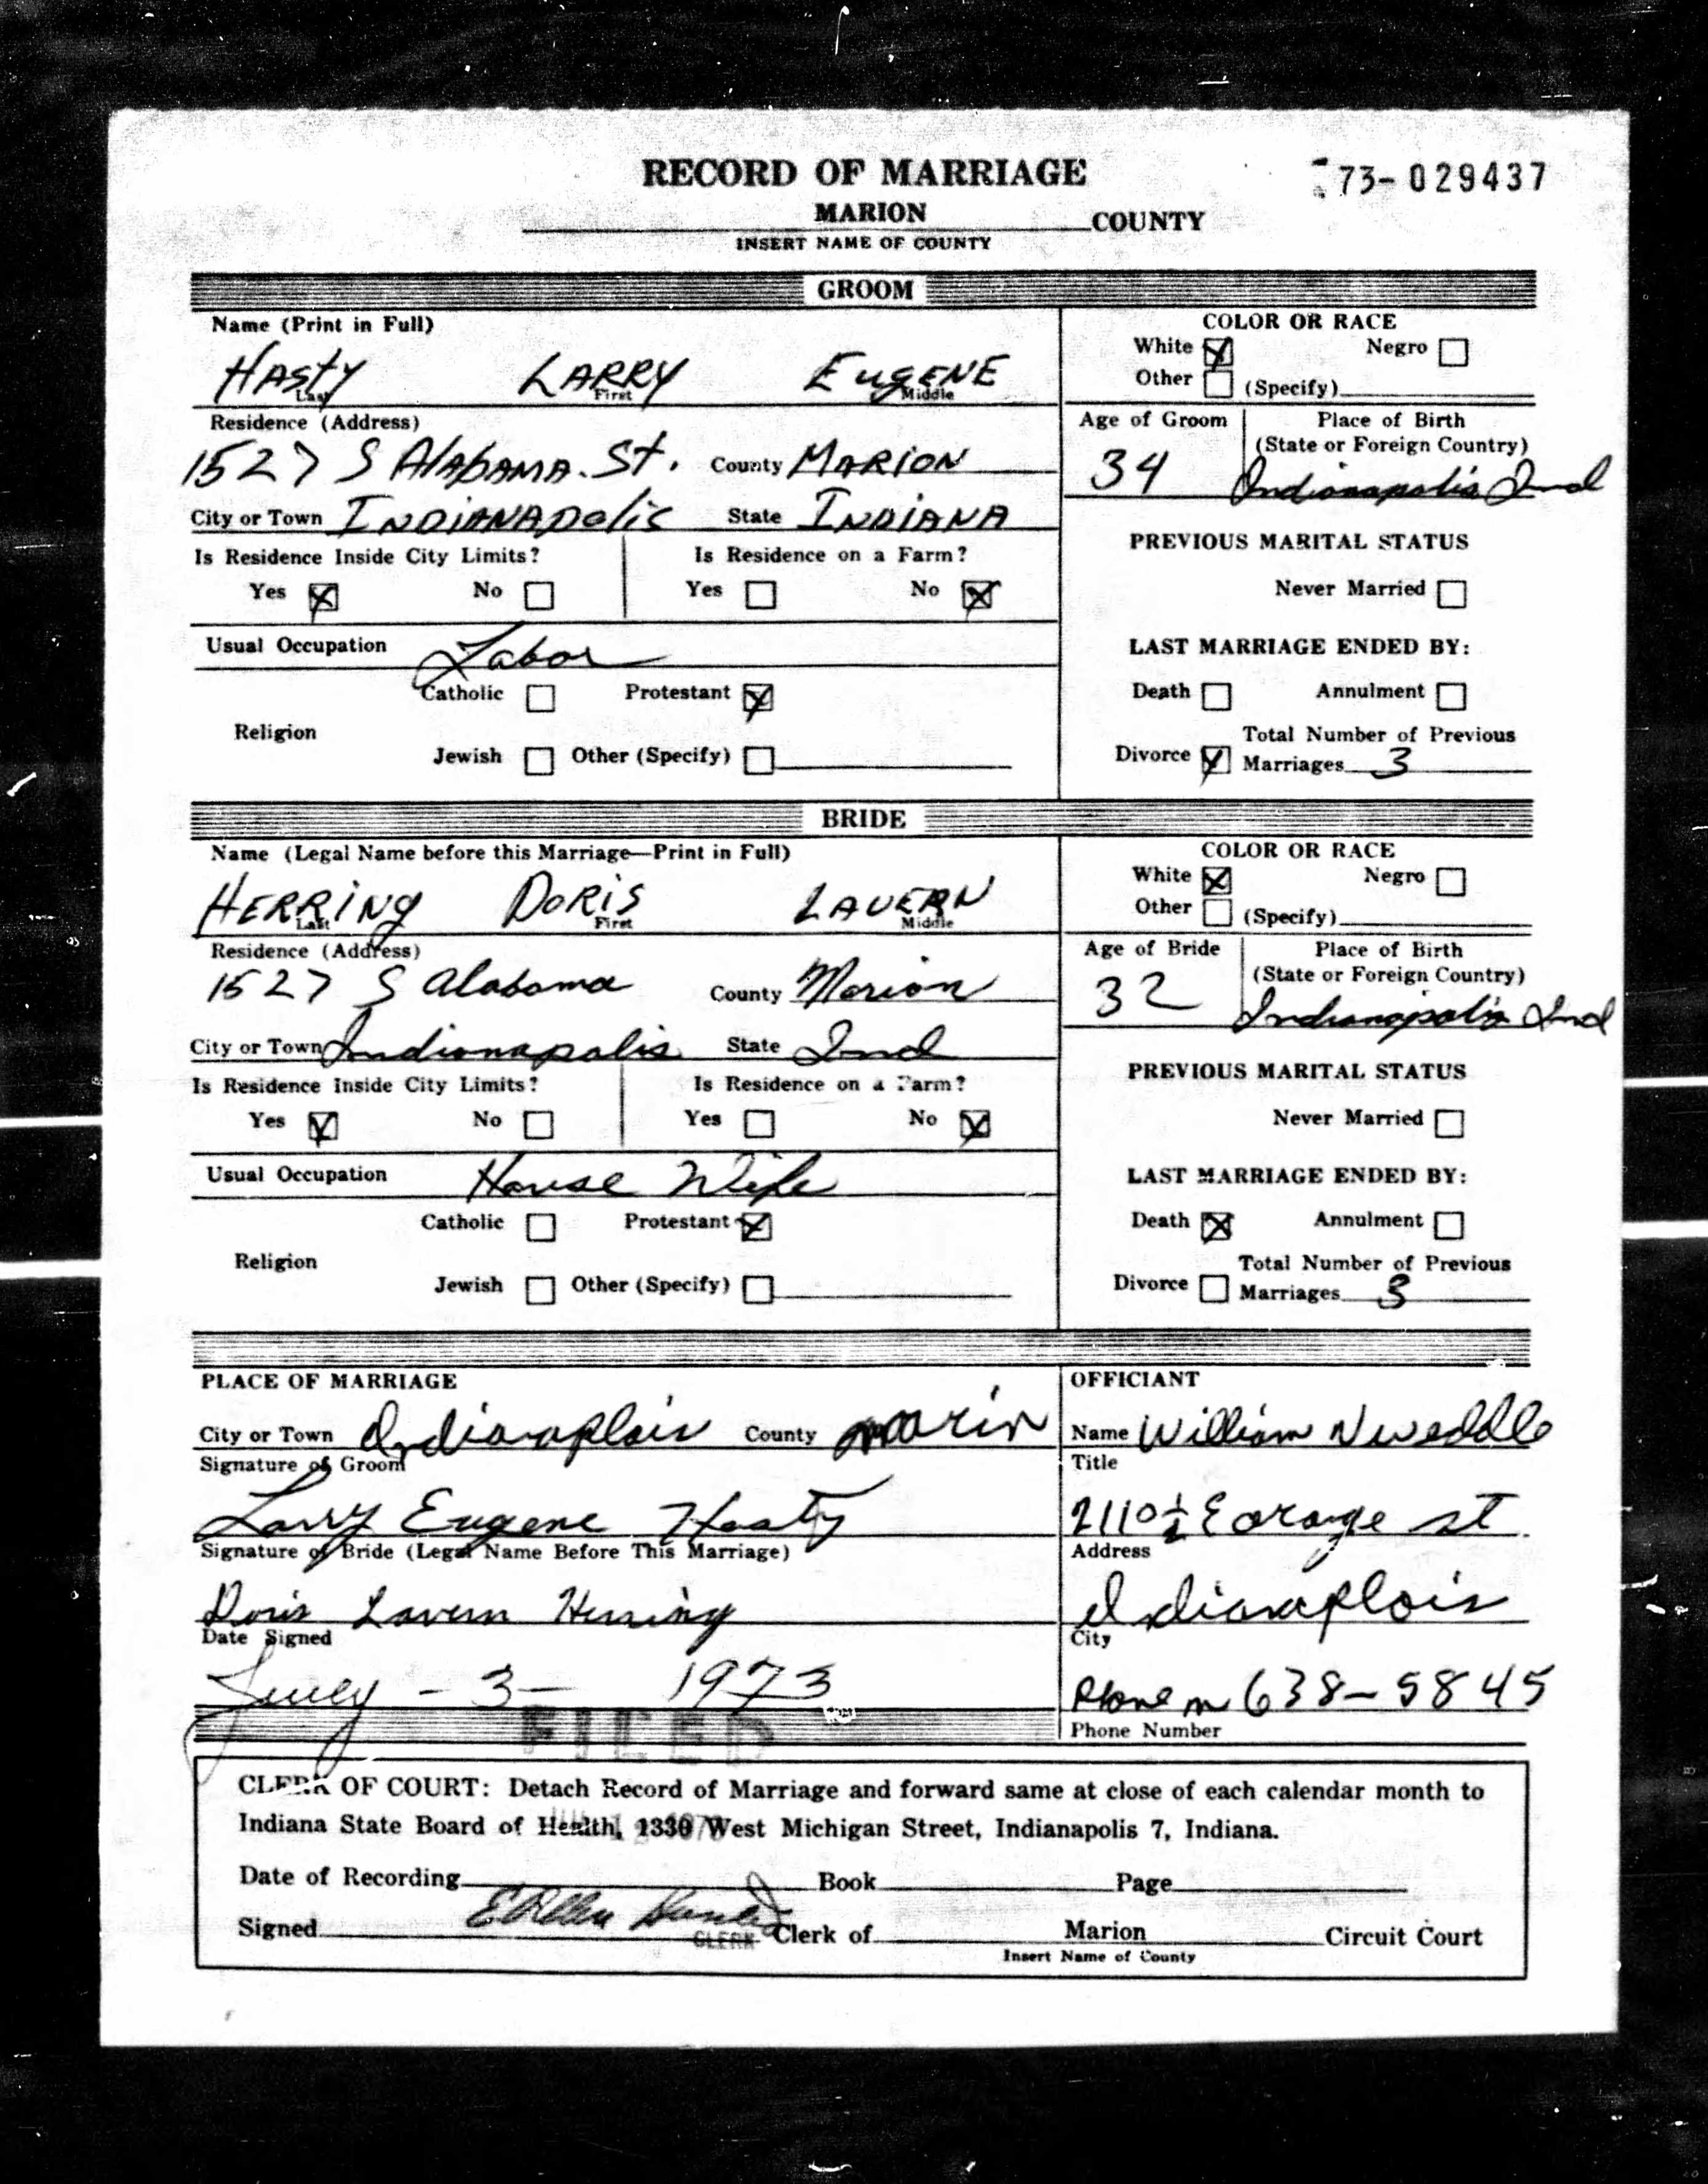 RECORD OF MARRIAGE 73-029437
MARION COUNTY
INSERT NAME OF COUNTY
GROOM
Name (Print in Full)
HASTY LARRY EUGENE
Last First Middle
COLOR OR RACE
White ☒ Negro ☐
Other ☐ (Specify)
Residence (Address)
1527 S ALABAMA. St. County MARION
City or Town INDIANAPOLIS State INDIANA
Age of Groom Place of Birth
(State or Foreign Country)
34 Indianapolis Ind
Is Residence Inside City Limits? Is Residence on a Farm?
Yes ☒ No ☐ Yes ☐ No ☒
PREVIOUS MARITAL STATUS
Never Married ☐
Usual Occupation Labor
LAST MARRIAGE ENDED BY:
Catholic ☐ Protestant ☒
Religion
Jewish ☐ Other (Specify) ☐
Death ☐ Annulment ☐
Total Number of Previous
Divorce ☒ Marriages 3
BRIDE
Name (Legal Name before this Marriage—Print in Full)
HERRING DORIS LAVERN
Last First Middle
COLOR OR RACE
White ☒ Negro ☐
Other ☐ (Specify)
Residence (Address)
1527 S Alabama County Marion
City or Town Indianapolis State Ind
Age of Bride Place of Birth
(State or Foreign Country)
32 Indianapolis Ind
Is Residence Inside City Limits? Is Residence on a Farm?
Yes ☒ No ☐ Yes ☐ No ☒
PREVIOUS MARITAL STATUS
Never Married ☐
Usual Occupation House Wife
LAST MARRIAGE ENDED BY:
Catholic ☐ Protestant ☒
Religion
Jewish ☐ Other (Specify) ☐
Death ☒ Annulment ☐
Total Number of Previous
Divorce ☐ Marriages 3
PLACE OF MARRIAGE
City or Town Indianaplois County marin
Signature of Groom
Larry Eugene Hasty
Signature of Bride (Legal Name Before This Marriage)
Doris Lavern Herring
Date Signed
- 3 - 1973
FILED
OFFICIANT
Name William
Title
2110½ E orange st.
Address
Indianaplois
City
Phone 638-5845
Phone Number
CLERK OF COURT: Detach Record of Marriage and forward same at close of each calendar month to
Indiana State Board of Health, 1330 West Michigan Street, Indianapolis 7, Indiana.
Date of Recording Book Page
Signed Clerk of Marion Circuit Court
CLERK
Insert Name of County